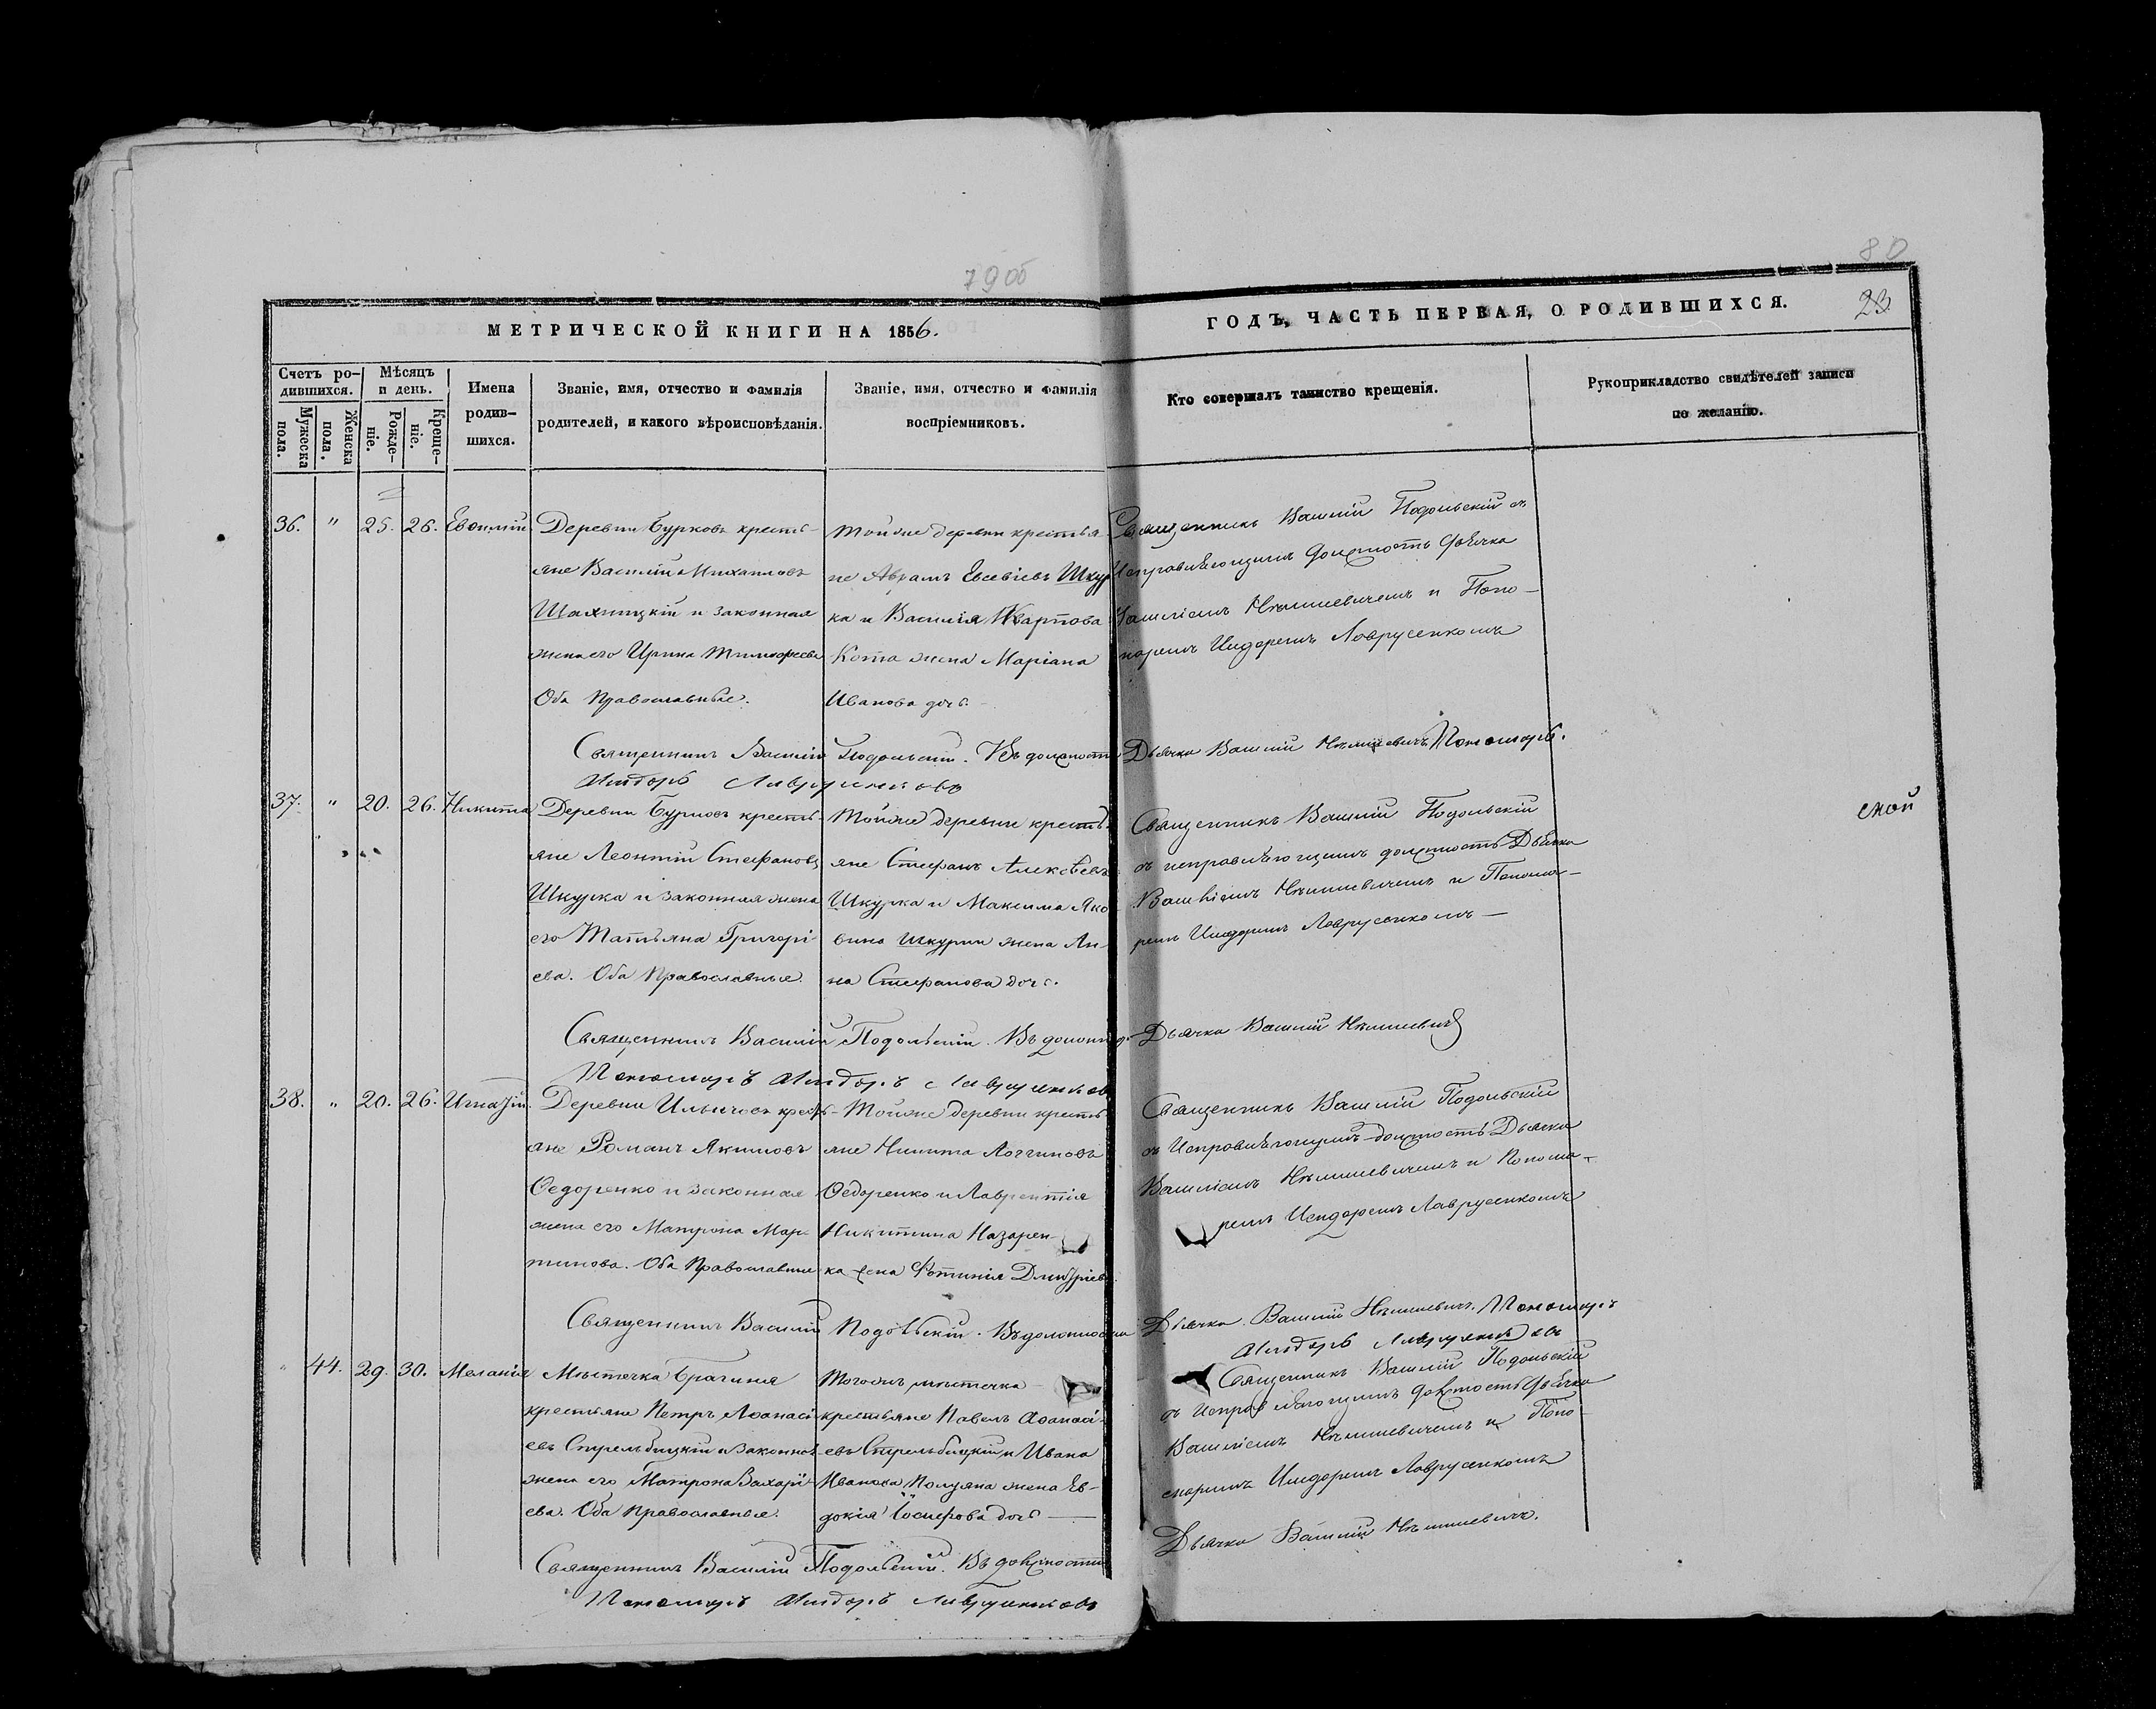 79 об
80
МЕТРИЧЕСКОЙ КНИГИ НА 1856.
ГОДЪ, ЧАСТЬ ПЕРВАЯ, О РОДИВШИХСЯ.
23
Счетъ ро-
дившихся.
Мужеска пола.
Женска пола.
Мѣсяцъ
и день.
Рожде-
ніе.
Креще-
ніе.
Имена
родив-
шихся.
Званіе, имя, отчество и фамилія
родителей, и какого вѣроисповѣданія.
Званіе, имя, отчество и фамилія
воспріемниковъ.
Кто совершалъ таинство крещенія.
Рукоприкладство свидѣтелей записи
по желанію.
36. " 25. 26. Евѳимій
Деревни Бурковъ кресть-
яне Василій Михаиловъ
Шахницкій и законная
жена его Ирина Тимоѳеева
Оба Православные.
Тойже деревни крестья-
не Аврамъ Евсевіевъ Шкур
ка и Василія Карпова
Кота жена Маріана
Иванова дочь.
Священникъ Василій Подольскій съ
исправляющимъ должность Дьячка
Василіемъ Нѣмшевичемъ и Поно-
маремъ Исидоромъ Лаврусенкомъ
Священникъ Василій Подольскій. Въ должности Дьячка Василій Нѣмшевичъ Пономарь.
Исидоръ
37. " 20. 26. Никита
Деревни Бурковъ кресть-
яне Леонтій Стефановъ
Шкурка и законная жена
его Татьяна Григорі-
ева. Оба Православные.
Тойже деревни кресть-
яне Стефанъ Алексѣевъ
Шкурка и Максима Яко-
вина Шкурки жена Ан-
на Стефанова дочь.
Священникъ Василій Подольскій
съ исправляющимъ должность Дьячка
Василіемъ Нѣмшевичемъ и Понома-
ремъ Исидоромъ Лаврусенкомъ
ской
Священникъ Василій Подольскій. Въ должности Дьячка Василій Нѣмшевичъ
Пономарь Исидоръ
38. " 20. 26. Игнатій.
Деревни Ильичовъ кресть-
яне Романъ Якимовъ
Ѳедоренко и законная
жена его Матрона Мар-
тинова. Оба Православные
Тойже деревни кресть-
яне Никита Логгиновъ
Ѳедоренко и Лаврентія
Никитина Назарен-
ка жена Фотинія Дмитріева
Священникъ Василій Подольскій
съ исправляющимъ должность Дьячка
Василіемъ Нѣмшевичемъ и Понома-
ремъ Исидоромъ Лаврусенкомъ
Священникъ Василій Подольскій. Въ должности Дьячка Василій Нѣмшевичъ. Пономарь
Исидоръ
" 44. 29. 30. Меланія
Мѣстечка Брагиня
крестьяне Петръ Аѳанасі-
евъ Стрельбицкій и законная
жена его Матрона Захарі-
ева. Оба Православные.
Тогожъ мѣстечка
крестьяне Павелъ Аѳанасі-
евъ Стрельбицкій и Ивана
Иванова Полуяна жена Ев-
докія Іосифова дочь
Священникъ Василій Подольскій
съ исправляющимъ должность Дьячка
Василіемъ Нѣмшевичемъ и Поно-
маремъ Исидоромъ Лаврусенкомъ
Священникъ Василій Подольскій. Въ должности Дьячка Василій Нѣмшевичъ.
Пономарь Исидоръ